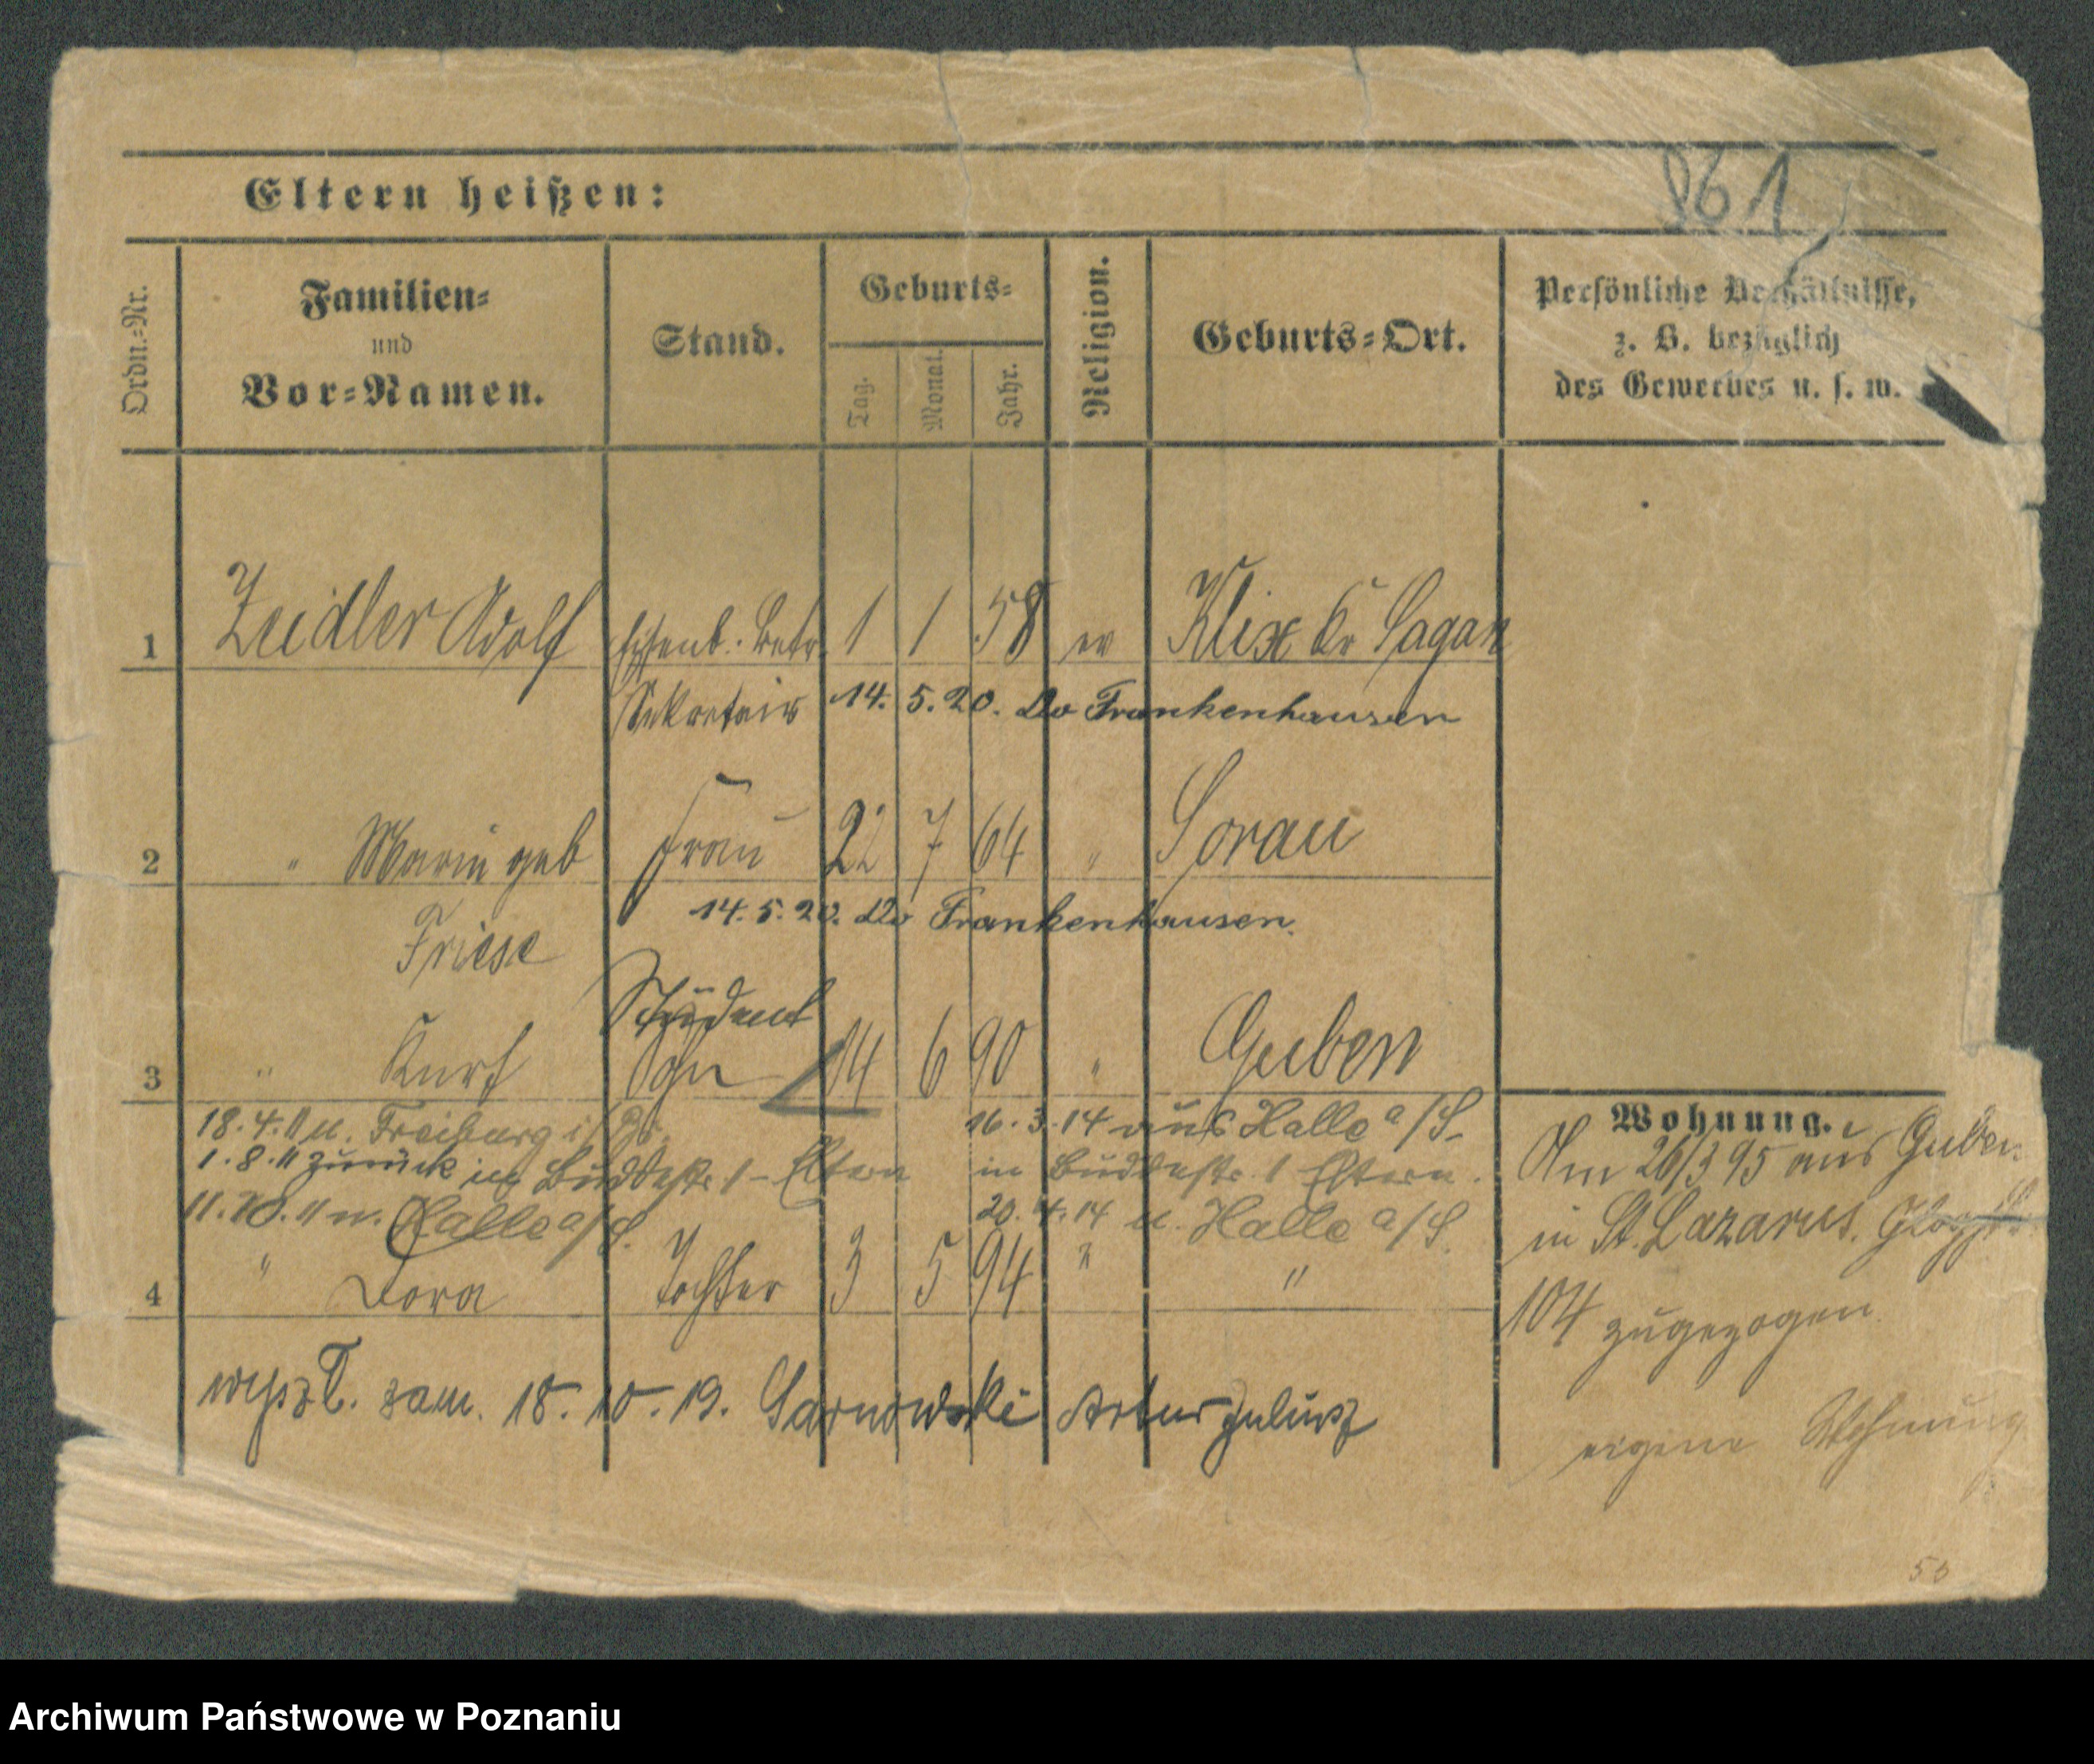 861
Eltern heißen:
Ordn.-Nr. Familien- und Vor-Namen. Stand. Geburts- Tag. Monat. Jahr. Religion. Geburts-Ort. Persönliche Verhältnisse, z. B. bezüglich des Gewerbes u. s. w.
1 Zeidler Adolf Eisenb. Betr. 1 1 58 ev Klix Kr Sagan
Sekretair 14. 5. 20. Do Frankenhausen
2 " Marie geb Frau 22 7 64 " Sorau
14. 5. 20. Do Frankenhausen.
Friese
Student
3 " Kurt Sohn 14 6 90 " Guben
18. 4. 11 n. Freiburg i/Br. 16. 3. 14 aus Halle a/S.
1. 8. 11 zurück in Buddestr. 1 - Eltern in Buddestr. 1 Eltern.
11. 10. 11 n. Halle a/S. 20. 4. 14 n. Halle a/S.
4 " Dora Tochter 3 5 94 " "
wyszł. zam. 18. 10. 19. Sarnowski Artur Juliusz
Wohnung.
Am 26/3 95 aus Guben
in St. Lazarus,
104 zugezogen
eigene Wohnung
Archiwum Państwowe w Poznaniu